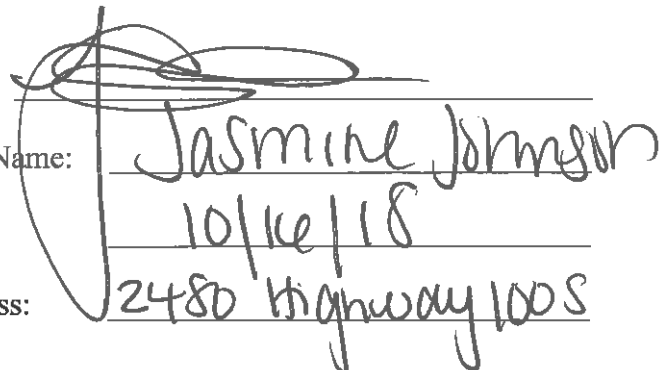 Name: Jasmine Johnson
10/16/18
ss: 2480 Highway 100 S